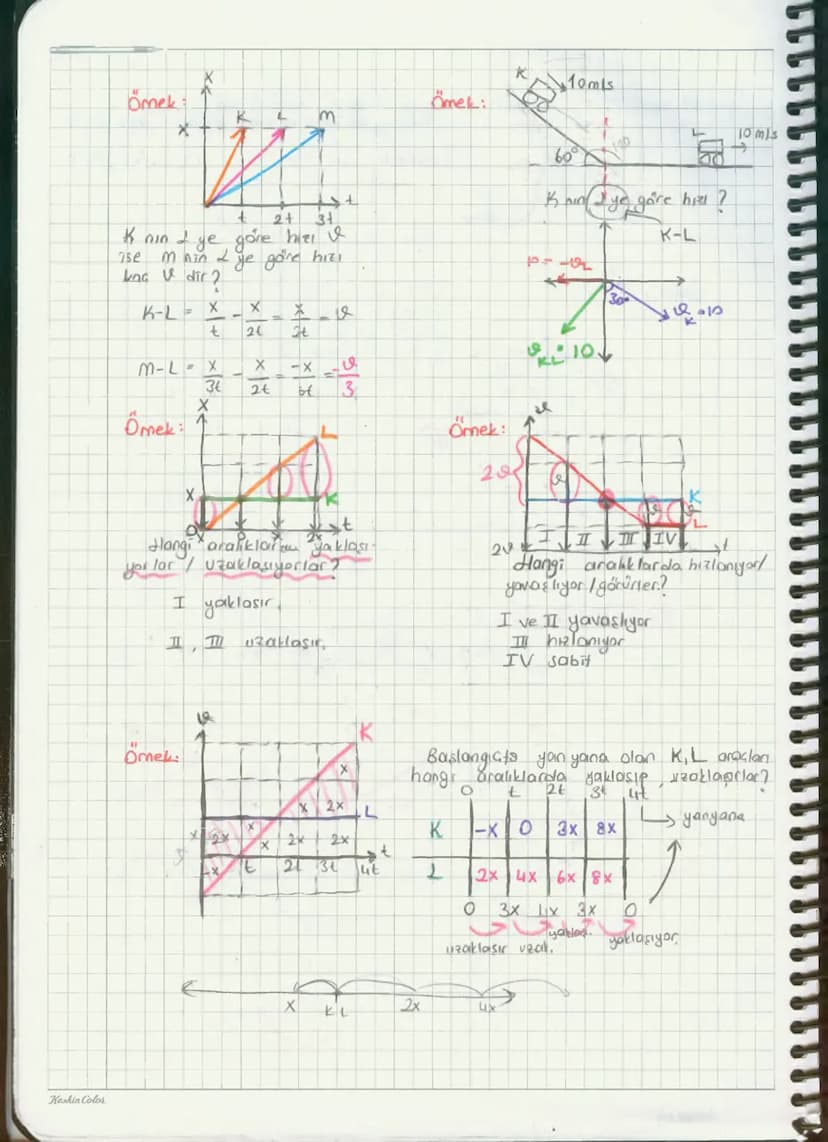 Örnek:
x
K L M
x
t 2t 3t t
K nın L ye göre hızı ϑ
ise M nin L ye göre hızı
kaç ϑ dir?
K-L = x/t - x/2t = x/2t = ϑ
M-L = x/3t - x/2t = -x/6t = -ϑ/3
Örnek:
K 10m/s
L 10 m/s
60°
K nın L ye göre hızı ?
K-L
10 = -ϑL
30°
ϑK = 10
ϑKL = 10
Örnek:
x
L
x K
0 t
x 0 x 2x
Hangi aralıklarda yaklaşı-
yorlar / uzaklaşıyorlar?
I yaklaşır.
II, III uzaklaşır.
Örnek:
ϑ
2ϑ ϑ
K
ϑ ϑ
L
I II III IV
2ϑ t
Hangi aralıklarda hızlanıyor/
yavaşlıyor/görürler?
I ve II yavaşlıyor
III hızlanıyor
IV sabit
Örnek:
ϑ
K
x
x 2x
L
x 2x x
x 2x 2x
-x t 2t 3t 4t
t
Başlangıçta yan yana olan K,L araçları
hangi aralıklarda yaklaşıp, uzaklaşırlar?
0 t 2t 3t 4t
yanyana
K -x 0 3x 8x
L 2x 4x 6x 8x
0 3x 4x 3x 0
uzaklaşır uzak. yaklaş. yaklaşıyor.
x K L 2x 4x
KeskinColor